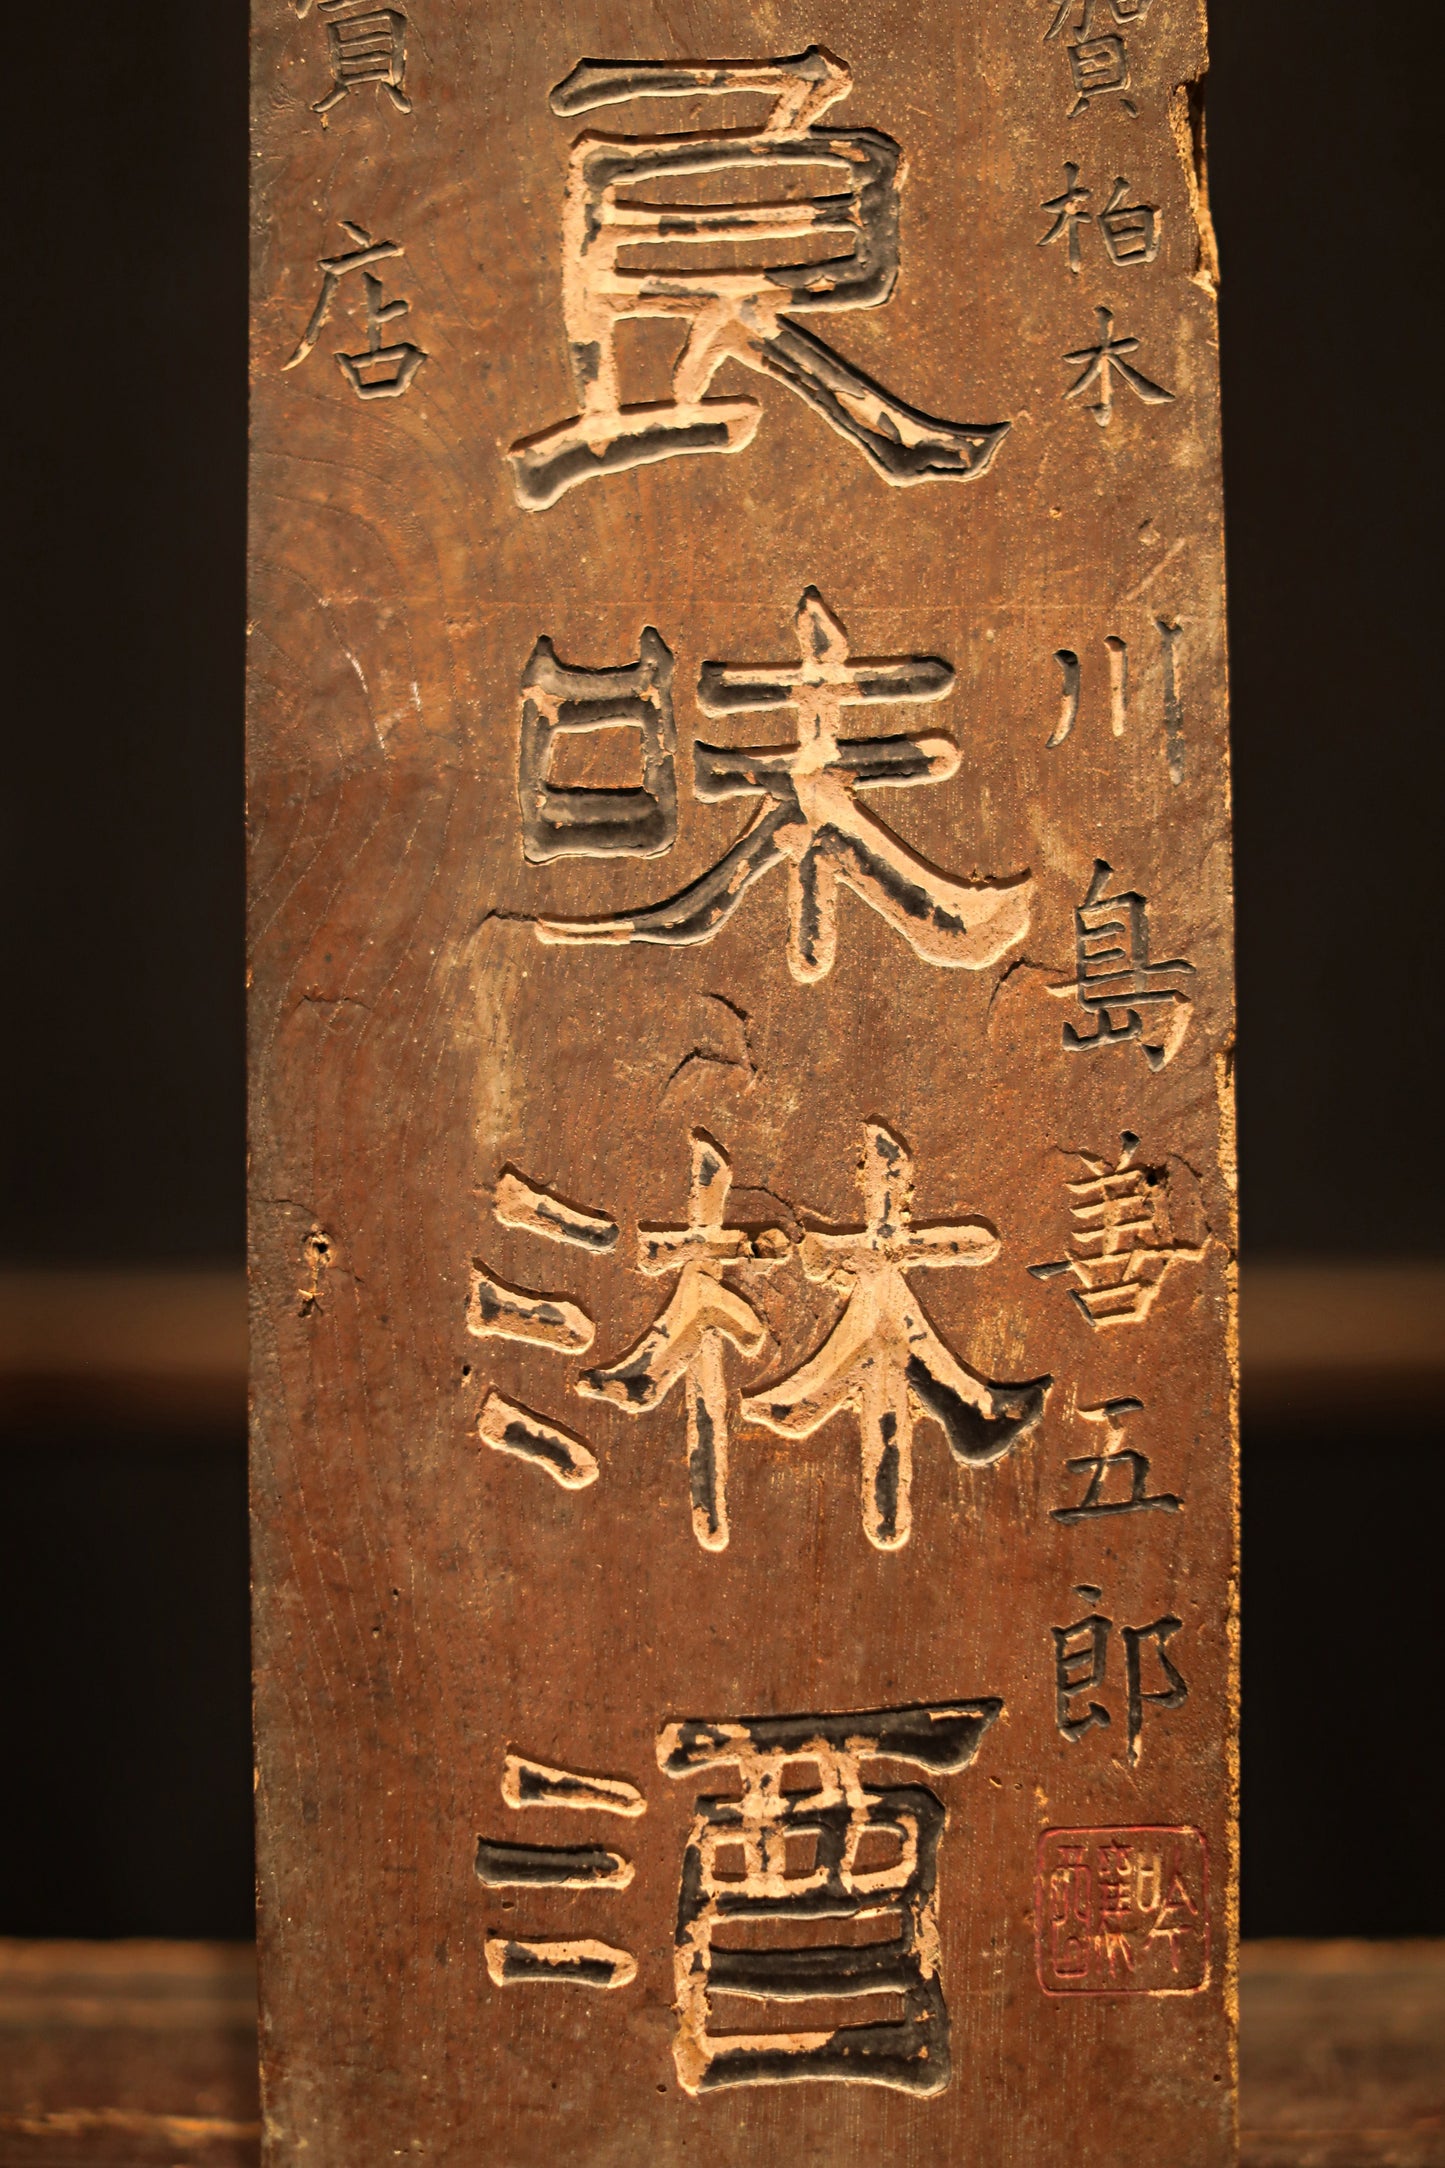 賀柏木川島善五郎
良味淋酒
賣店